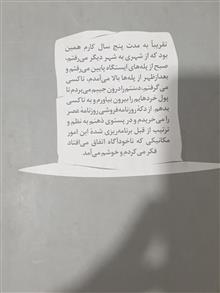 تقریباً به مدت پنج سال کارم همین
بود که از شهری به شهر دیگر می‌رفتم،
صبح از پله‌های ایستگاه پایین می‌رفتم و
بعدازظهر از پله‌ها بالا می‌آمدم، تاکسی
می‌گرفتم، دستم را درون جیبم می‌بردم تا
پول خردهایم را بیرون بیاورم و به تاکسی
بدهم. از دکهٔ روزنامه‌فروشی روزنامهٔ عصر
را می‌خریدم و در پستوی ذهنم به نظم و
ترتیب از قبل برنامه‌ریزی شدهٔ این امور
مکانیکی که ناخودآگاه اتفاق می‌افتاد
فکر می‌کردم و خوشم می‌آمد.